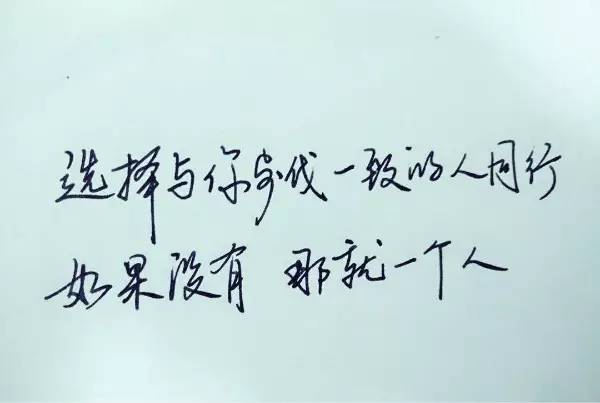 选择与你步伐一致的人同行
如果没有 那就一个人